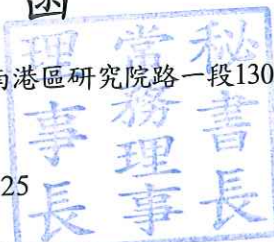 函
南港區研究院路一段130
25
秘書長
常務理事
理事長